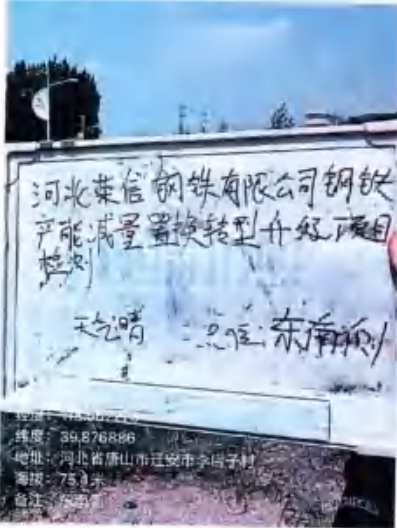 河北荣信钢铁有限公司钢铁
产能减量置换转型升级项目
检测
天气晴 点位:东南侧
纬度: 39.876886
地址: 河北省唐山市迁安市
海拔: 75.4米
备注: